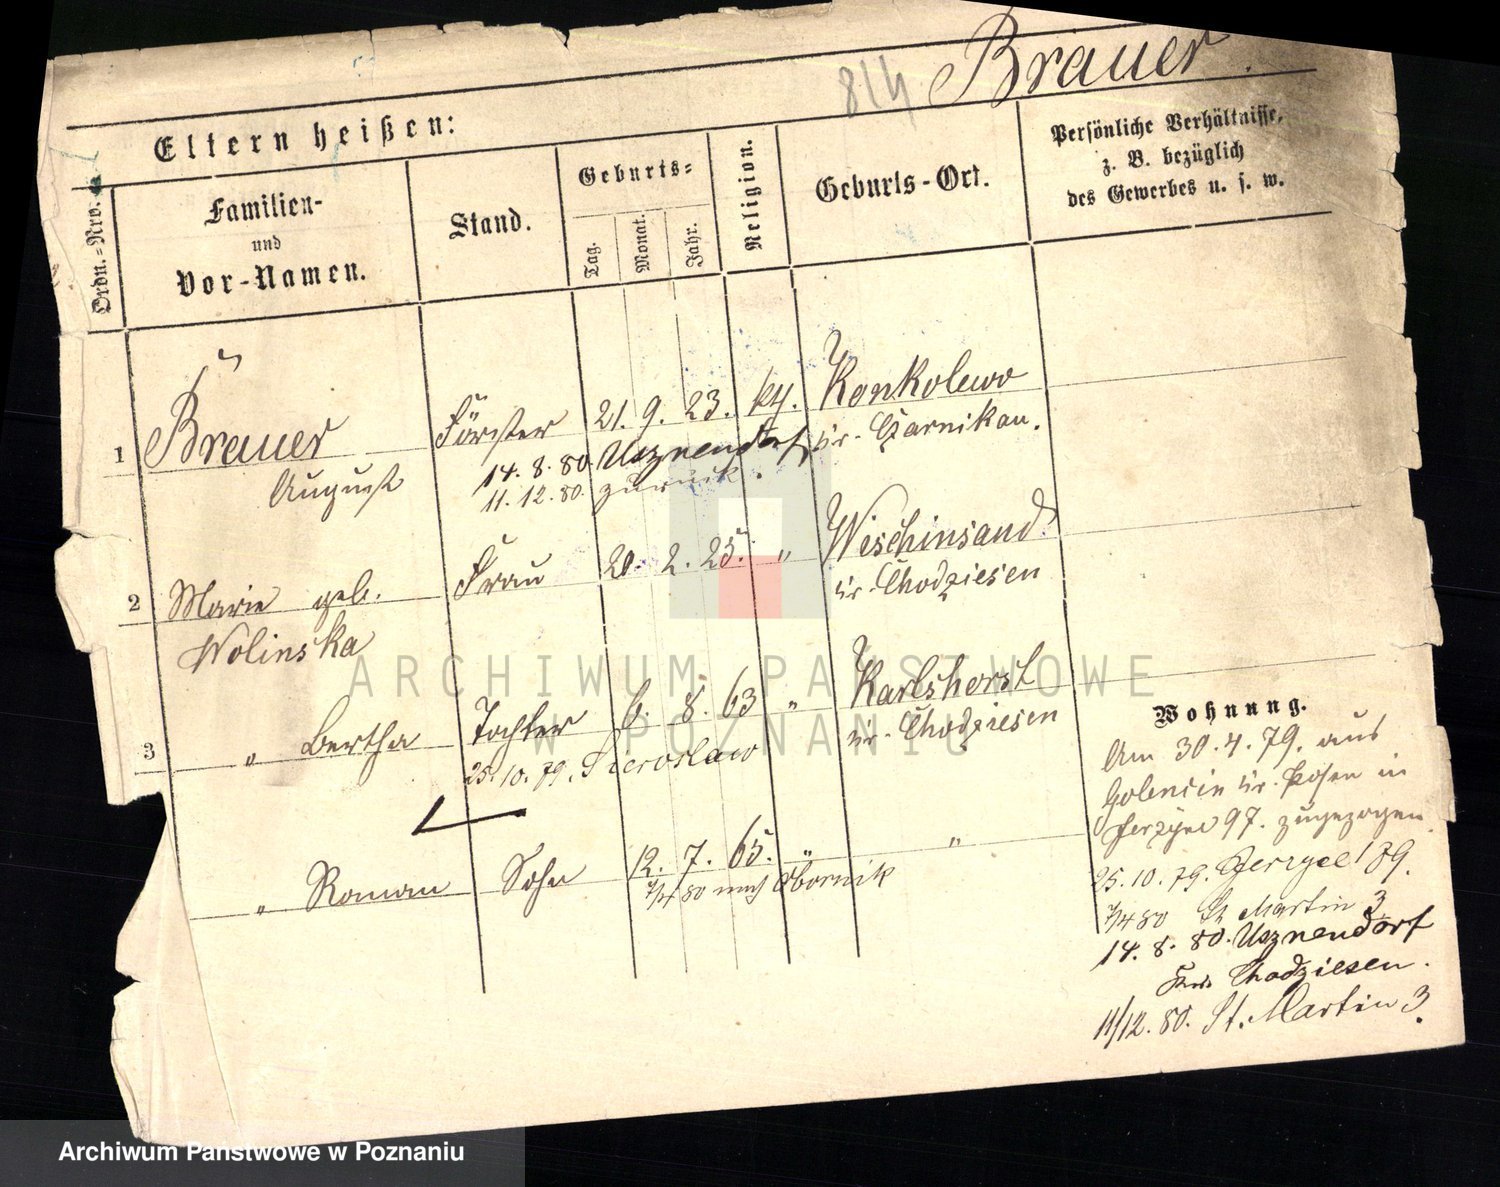 814 Brauer.
Eltern heißen:
Ordn.-Nro.
Familien-
und
Vor-Namen.
Stand.
Geburts-
Tag.
Monat.
Jahr.
Religion.
Geburts-Ort.
Persönliche Verhältnisse,
z. B. bezüglich
des Gewerbes u. s. w.
1 Brauer Förster 21. 9. 23. kth. Konkolewo
August
Kr. Czarnikau.
14. 8. 80. Usznendorf
11. 12. 80. zurück.
2 Marie geb. Frau 20. 2. 25. " Wischinsand
Wolinska
Kr. Chodziesen
3 " Bertha Tochter 6. 8. 63 " Karlshorst
25. 10. 79. Sieroslaw
Kr. Chodziesen
" Roman Sohn 12. 7. 65. " "
7/4 80 nach Obornik
Wohnung.
Am 30. 4. 79. aus
Golencin Kr. Posen in
Jerzyce 97. zugezogen.
25. 10. 79. Jerzyce 189.
7/4 80 St Martin 3
14. 8. 80. Usznendorf
Krs. Chodziesen.
11/12. 80. St. Martin 3.
ARCHIWUM PAŃSTWOWE
W POZNANIU
Archiwum Państwowe w Poznaniu